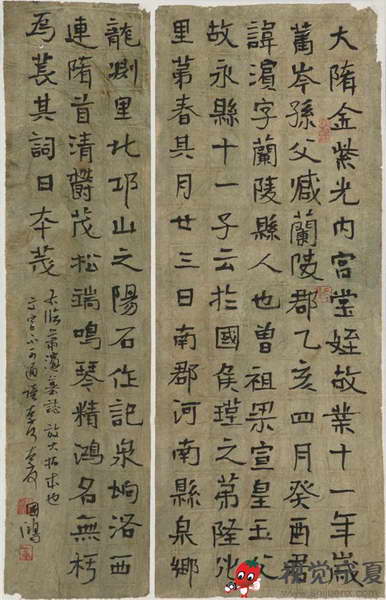 大隋金紫光内宫堂姪故業十一年
岑孫父臧蘭陵郡乙亥四月癸酉君
諱濱字蘭陵縣人也曾祖宣皇
故永縣十一子云於國侯瑾之第隆
里第春其月廿三日南郡河南縣泉鄉
龍淵里北邙山之陽石作記泉坰洛西
連隋首清爵茂松端鳴琴精鴻名無朽
焉其詞曰本茂
墓誌放大拓本也
國鴻
视觉 夏